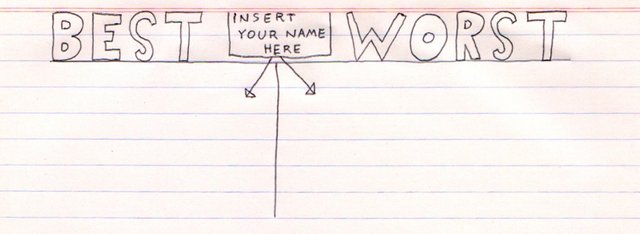 BEST
INSERT
YOUR NAME
HERE
WORST